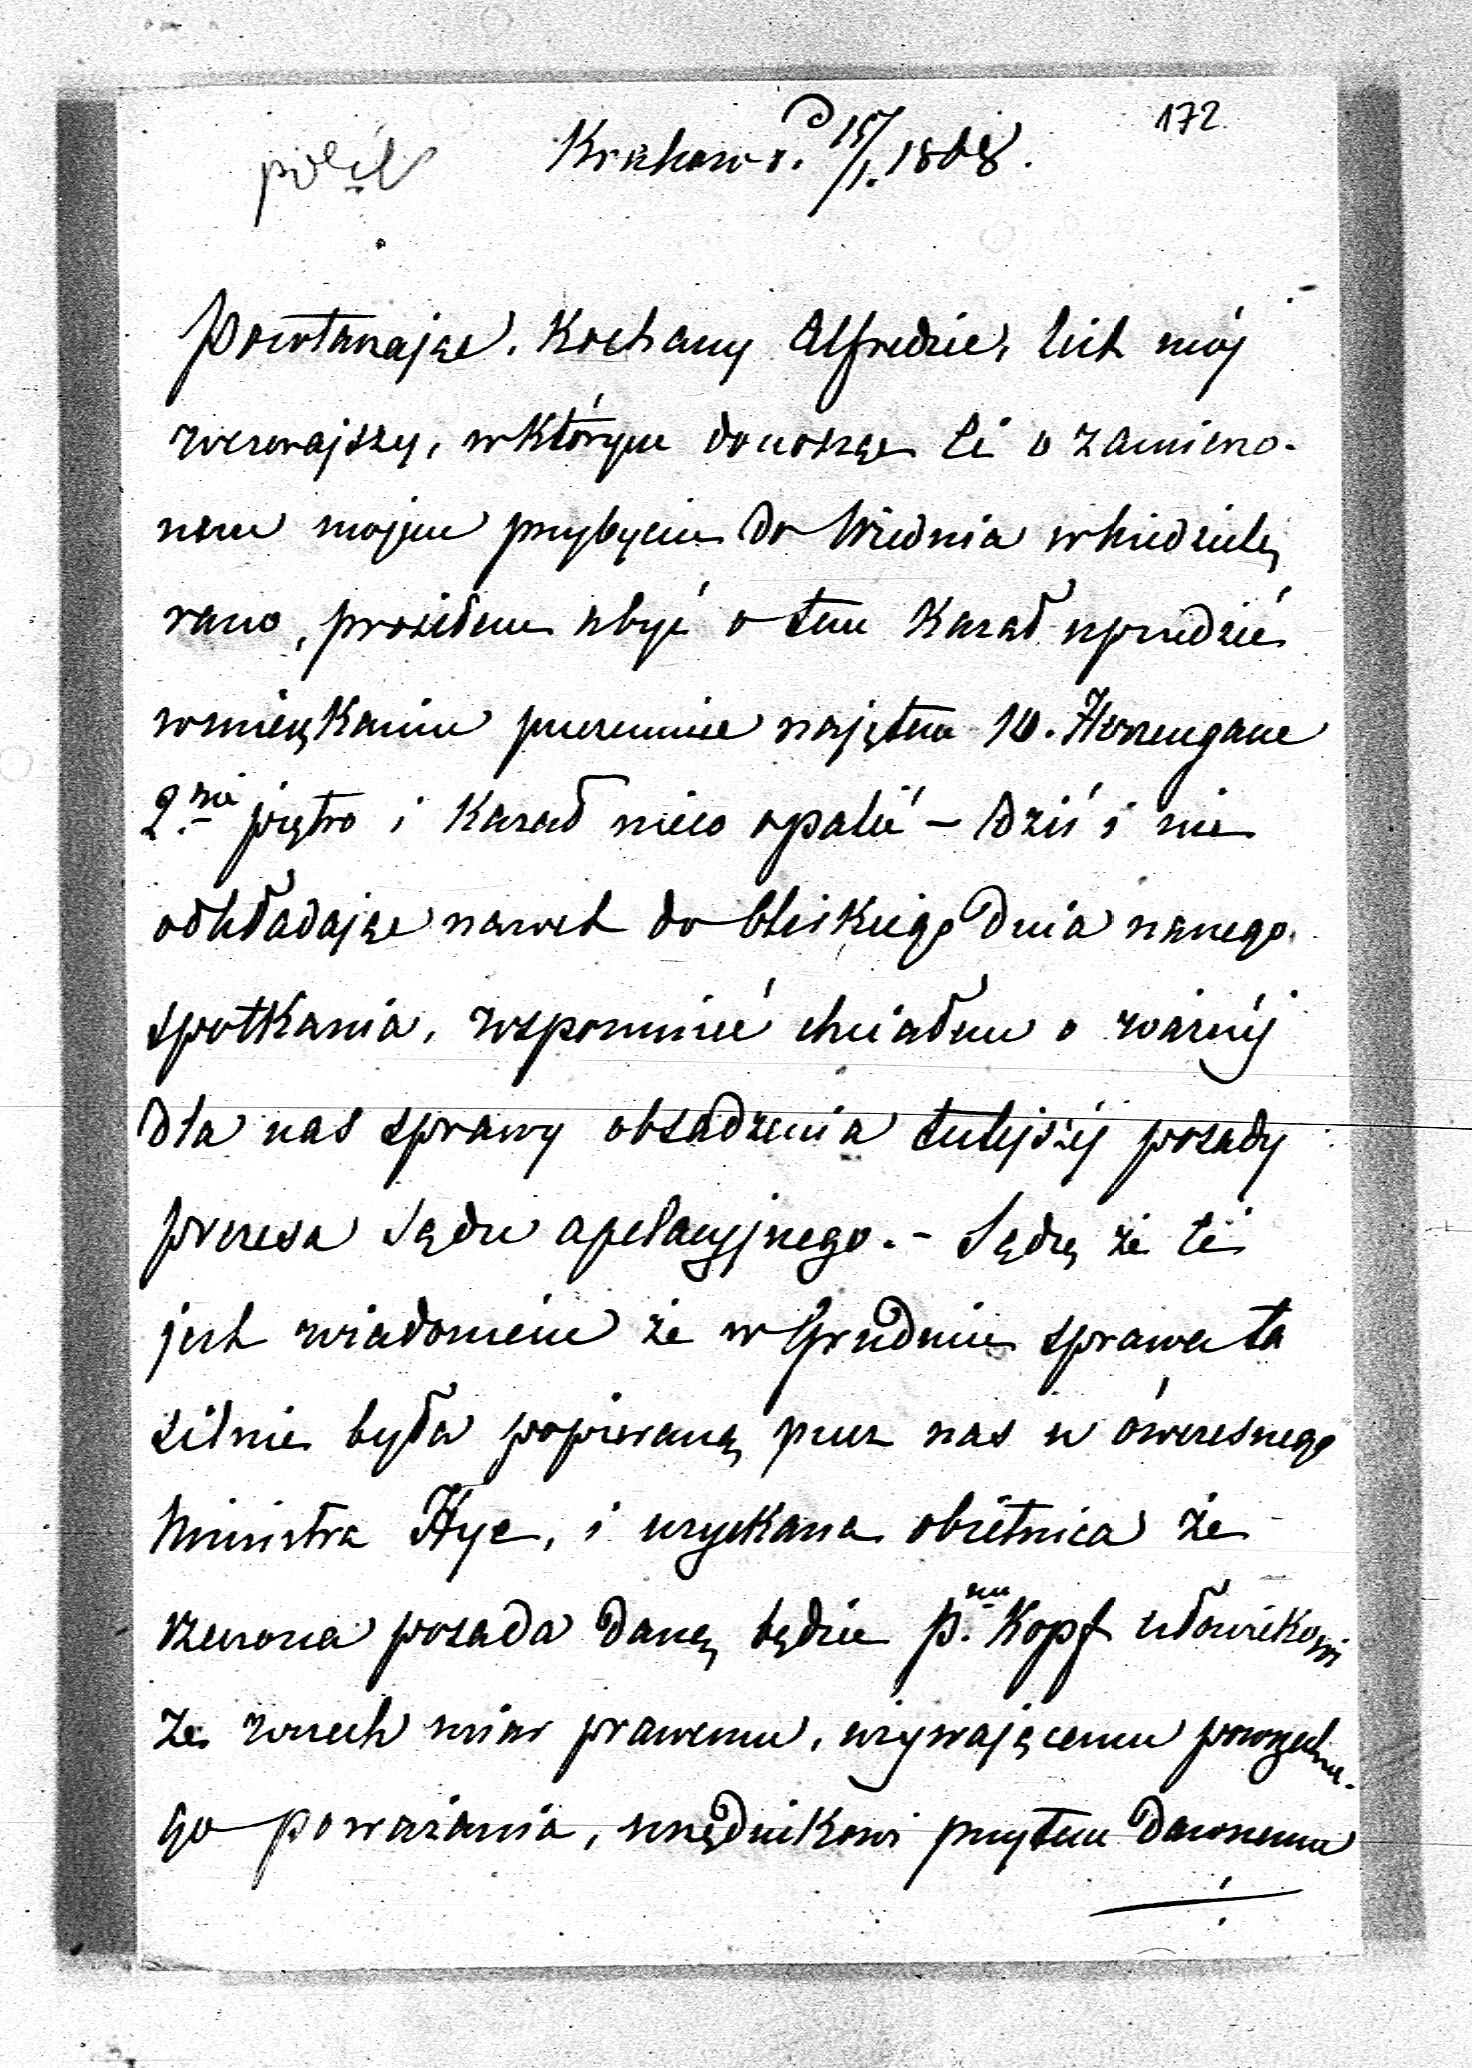 172
Kraków d. 15/1. 1868.
Powtarzając, Kochany Alfredzie, list mój
wczorajszy, w którym donoszę Ci o zamierzo-
nem mojem przybyciu do Wiednia w Niedzielę
rano, prosiłem abyś o tem kazał uprzedzić
w mieszkaniu przezemnie najętem 10.
2. piętro i kazał nieco opalić – Dziś i nie
odkładając nawet do bliskiego dnia naszego
spotkania, wspomnieć chciałem o ważnéj
dla nas sprawy obsadzenia tutejszéj posady
prezesa Sądu apelacyjnego. – Sądzę że Ci
jest wiadomem że w Grudniu sprawa ta
silnie była popieraną przez nas u ówczesnego
Ministra Hye, i uzyskana obietnica że
rzeczona posada daną będzie P.nu Kopf człowiekowi
ze wszech miar prawemu, używającemu powszechne-
go poważania, urzędnikowi przytem dawnemu